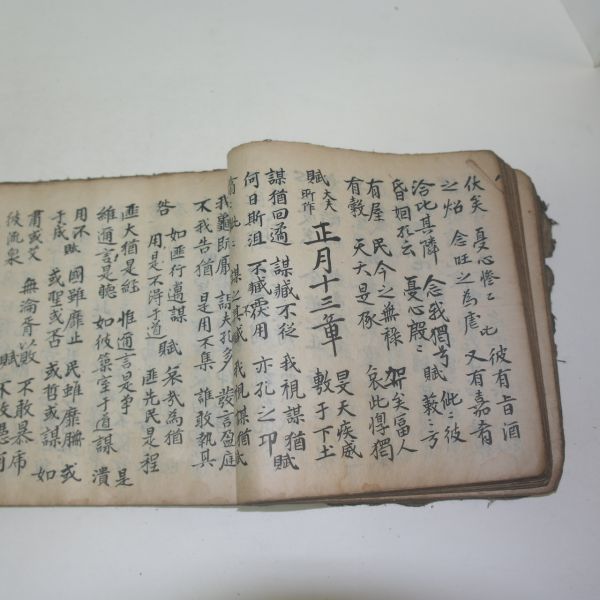 伏矣 憂心慘〻 此 彼有旨酒
之炤 念旺之為虐 又有嘉肴
洽比其隣 念我獨兮 賦 此〻彼
昏姻孔云 憂心殷〻 蔌〻方
有屋 民今之無祿 哿矣富人
有穀 天夭是椓 哀此惸獨
賦 大夫所作 正月十三章 旻天疾威
敷于下土
謀猶回遹 謀臧不從 我視謀猶 賦
何日斯沮 不臧覆用 亦孔之卭
謀之其臧 我視謀猶 賦
我龜既厭 謀夫孔多 發言盈庭
不我告猶 是用不集 誰敢執其
咎 如匪行邁謀 賦 哀哉為猶
用是不得于道 匪先民是程
匪大猶是經 惟邇言是爭 是
維邇言是聽 如彼築室于道謀 潰
用不 國雖靡止 民雖靡膴 或
于成 或聖或否 或哲或謀 如
肅或艾 無淪胥以敗 不敢暴
彼流泉 賦 不敢